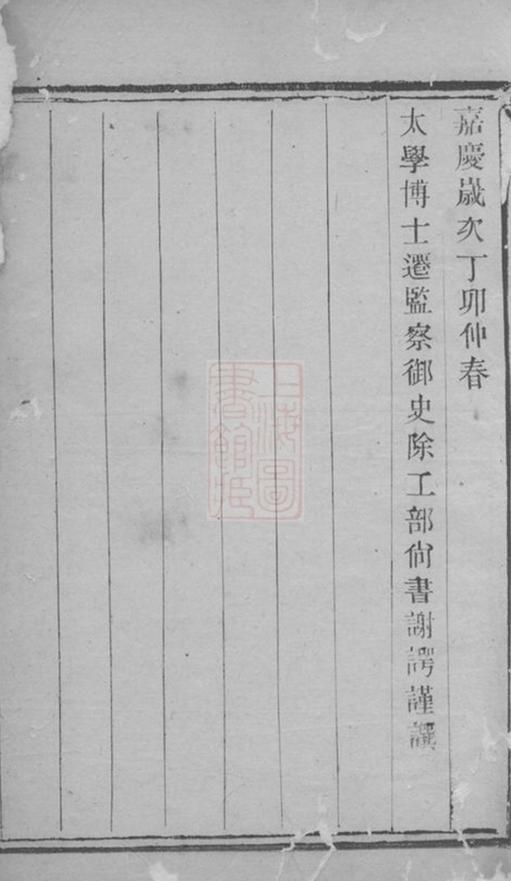 嘉慶歲次丁卯仲春
太學博士遷監察御史除工部尙書謝諤謹譔
上海圖
書館藏